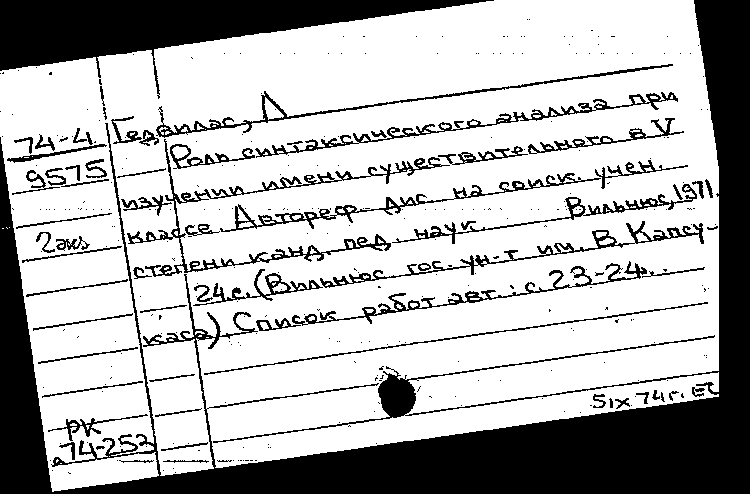 74-4
9575
2 экз
Гедвилас, Л
Роль синтаксического анализа при
изучении имени существительного в V
классе. Автореф. дис. на соиск. учен.
степени канд. пед. наук Вильнюс, 1971.
24 с. (Вильнюс гос. ун-т им. В. Капсу-
каса). Список работ авт.: с. 23-24.
5 IX 74 г.
РК
а74-253